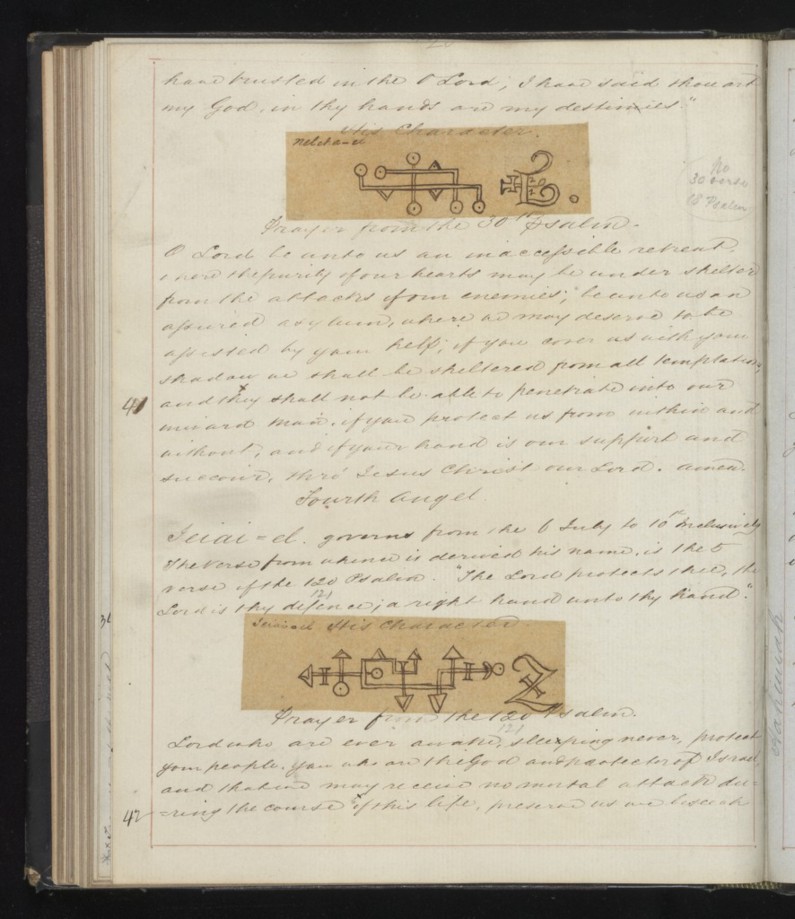 have trusted in the O Lord; I have said thou art
my God, in thy hands are my destinies."
His Character.
Nelcha-el
No
30 verse
18 Psalm
Prayer from the 30th Psalm.
O Lord be unto us an inaccessible retreat,
where the purity of our hearts may be under shelter
from the attacks of our enemies; be unto us an
assured asylum, where we may deserve to be
assisted by your help; if you cover us with your
shadow we shall be sheltered from all temptation,
41
and they shall not be able to penetrate into our
inward man, if you protect us from within and
without, and if your hand is our support and
succour, thro' Jesus Christ our Lord. amen.
Fourth Angel
Ieiai=el. governs from the 6 July to 10th Inclusively
The Verse from whence is derived his name, is the 5
verse of the 120 Psalm. "The Lord protects thee, the
121
Lord is thy defence; a right hand unto thy hand."
Ieiai=el His Character
Prayer from the 120 Psalm.
121
Lord who are ever awake, sleeping never, protect
your people. You who are the God and protector of Israel
and that we may receive no mortal attack du-
42
=ring the course of this life, preserve us we beseech
Hahmiah